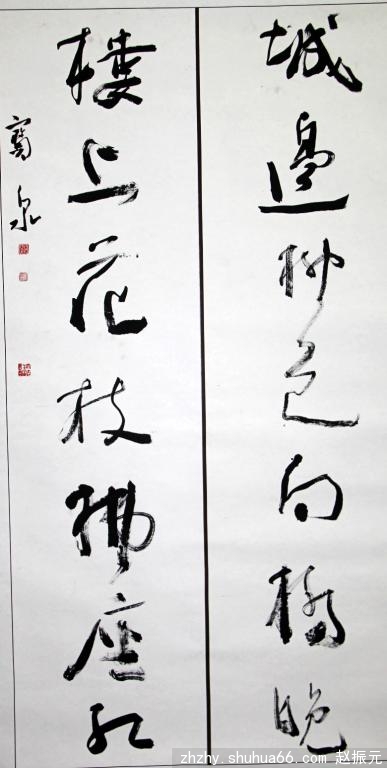 城邊柳色向橋晚
樓上花枝拂座紅
寳泉
zhzhy.shuhua66.com 赵振元